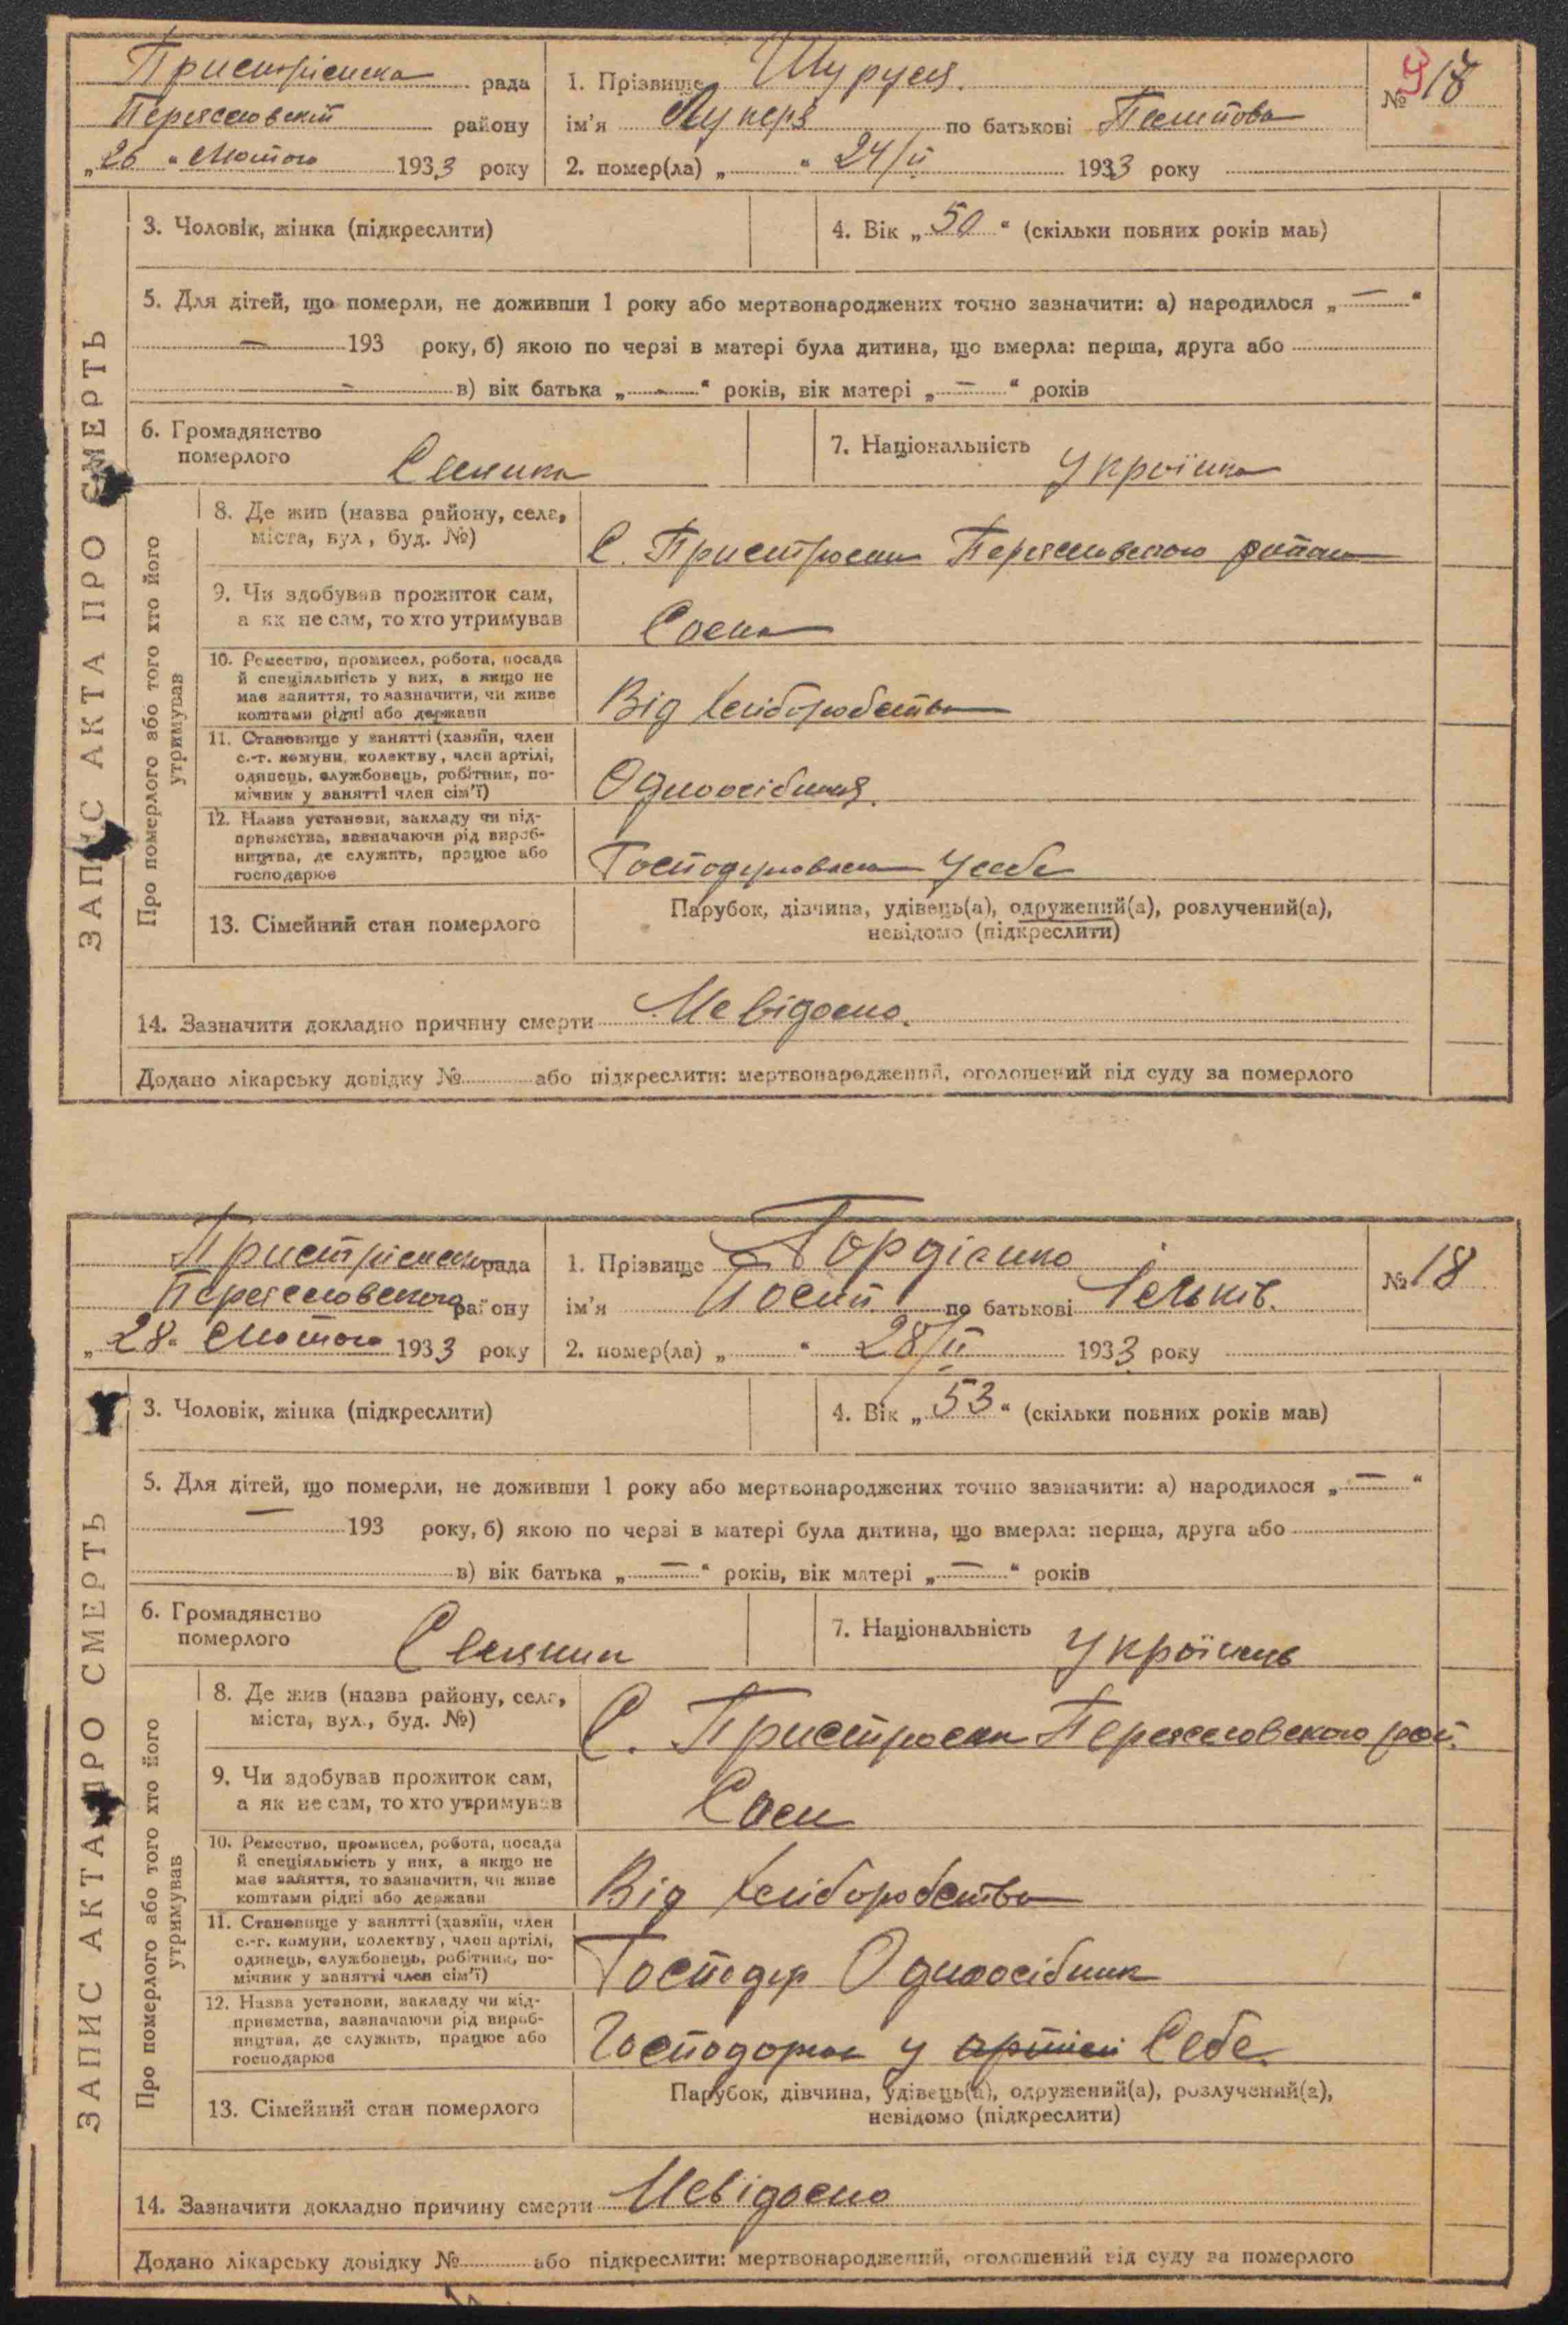 ЗАПИС АКТА ПРО СМЕРТЬ
рада
Переясловский району
„26“ Лютого 1933 року
1. Прізвище Шуруся.
ім'я по батькові
2. помер(ла) „ “ 24/II 1933 року
№ 17
3. Чоловік, жінка (підкреслити)
4. Вік „50“ (скільки повних років мав)
5. Для дітей, що померли, не доживши 1 року або мертвонароджених точно зазначити: а) народилося „—“
— 193 року, б) якою по черзі в матері була дитина, що вмерла: перша, друга або
— в) вік батька „—“ років, вік матері „—“ років
6. Громадянство
померлого
7. Національність Українка
Про померлого або того хто його
утримував
8. Де жив (назва району, села,
міста, вул., буд. №)
С. Пристроми Переяславского район
9. Чи здобував прожиток сам,
а як не сам, то хто утримував
Сама
10. Ремество, промисел, робота, посада
й спеціяльність у них, а якщо не
має заняття, то зазначити, чи живе
коштами рідні або держави
Від хліборобства
11. Становище у занятті (хазяїн, член
с.-г. комуни, колективу, член артілі,
одинець, службовець, робітник, по-
мічник у занятті член сім'ї)
Одноосібниця.
12. Назва установи, закладу чи під-
приємства, зазначаючи рід вироб-
ництва, де служить, працює або
господарює
Господарювала у себе
13. Сімейний стан померлого
Парубок, дівчина, удівець(а), одружений(а), розлучений(а),
невідомо (підкреслити)
14. Зазначити докладно причину смерти Невідомо.
Додано лікарську довідку № або підкреслити: мертвонароджений, оголошений від суду за померлого
ЗАПИС АКТА ПРО СМЕРТЬ
рада
Переясловского району
„28“ Лютого 1933 року
1. Прізвище Гордієнко
ім'я Йосип по батькові
2. помер(ла) „ “ 28/II 1933 року
№ 18
3. Чоловік, жінка (підкреслити)
4. Вік „53“ (скільки повних років мав)
5. Для дітей, що померли, не доживши 1 року або мертвонароджених точно зазначити: а) народилося „—“
— 193 року, б) якою по черзі в матері була дитина, що вмерла: перша, друга або
в) вік батька „—“ років, вік матері „—“ років
6. Громадянство
померлого
Селянин
7. Національність Українець
Про померлого або того хто його
утримував
8. Де жив (назва району, села,
міста, вул., буд. №)
С. Пристроми Переясловского рай.
9. Чи здобував прожиток сам,
а як не сам, то хто утримував
Сам
10. Ремество, промисел, робота, посада
й спеціяльність у них, а якщо не
має заняття, то зазначити, чи живе
коштами рідні або держави
Від хліборобства
11. Становище у занятті (хазяїн, член
с.-г. комуни, колективу, член артілі,
одинець, службовець, робітник, по-
мічник у занятті член сім'ї)
Господар Одноосібник
12. Назва установи, закладу чи під-
приємства, зазначаючи рід вироб-
ництва, де служить, працює або
господарює
у артілі Себе.
13. Сімейний стан померлого
Парубок, дівчина, удівець(а), одружений(а), розлучений(а),
невідомо (підкреслити)
14. Зазначити докладно причину смерти Невідомо
Додано лікарську довідку № або підкреслити: мертвонароджений, оголошений від суду за померлого